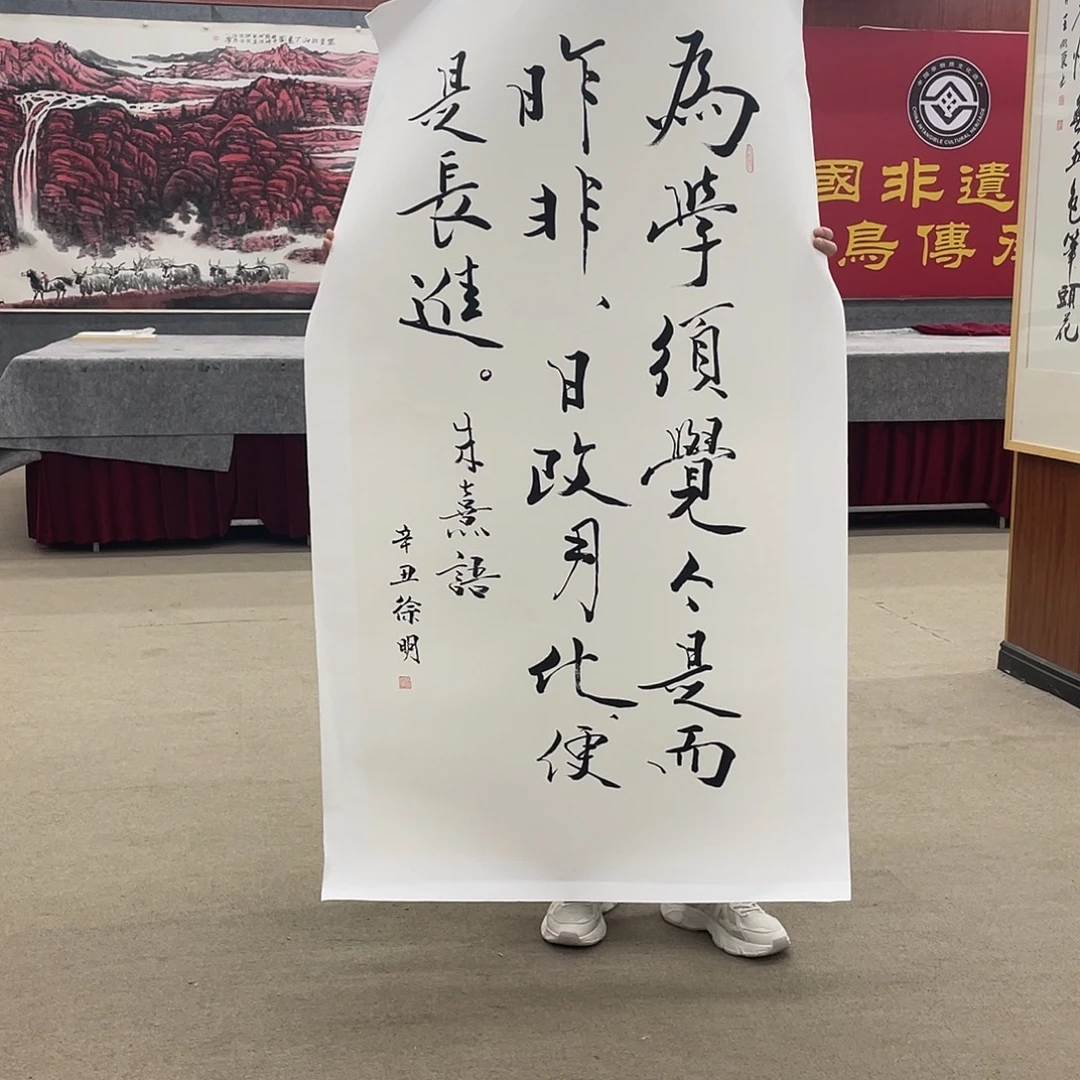 為學須覺今是而
昨非、日改月化、便
是長進。
朱熹語
辛丑徐明
國非遺
鳥傳承
CHINA INTANGIBLE CULTURAL HERITAGE
五色筆頭花